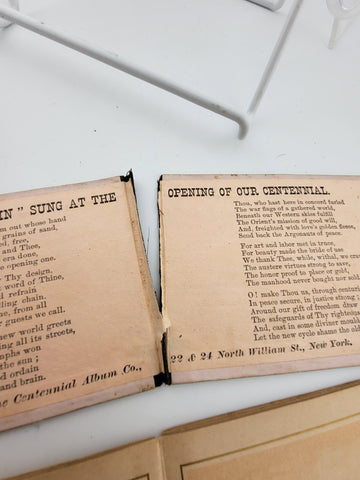 IN" SUNG AT THE
m out whose hand
grains of sand,
ed, free,
and Thee,
era done,
e opening one.
Thy design,
word of Thine,
d refrain
lling chain.
me, from all
r guests we call.
new world greets
ing all its streets,
mphs won
the sun ;
d ordain
and brain.
e Centennial Album Co.,
OPENING OF OUR CENTENNIAL.
Thou, who hast here in concord furled
The war flags of a gathered world,
Beneath our Western skies fulfill
The Orient's mission of good will,
And, freighted with love's golden fleece,
Send back the Argonauts of peace.
For art and labor met in truce,
For beauty made the bride of use
We thank Thee, while, withal, we cra
The austere virtues strong to save,
The honor proof to place or gold,
The manhood never bought nor sold
O! make Thou us, through centuri
In peace secure, in justice strong
Around our gift of freedom draw
The safeguards of Thy righteous
And, cast in some diviner mould
Let the new cycle shame the old
22 & 24 North William St., New York.